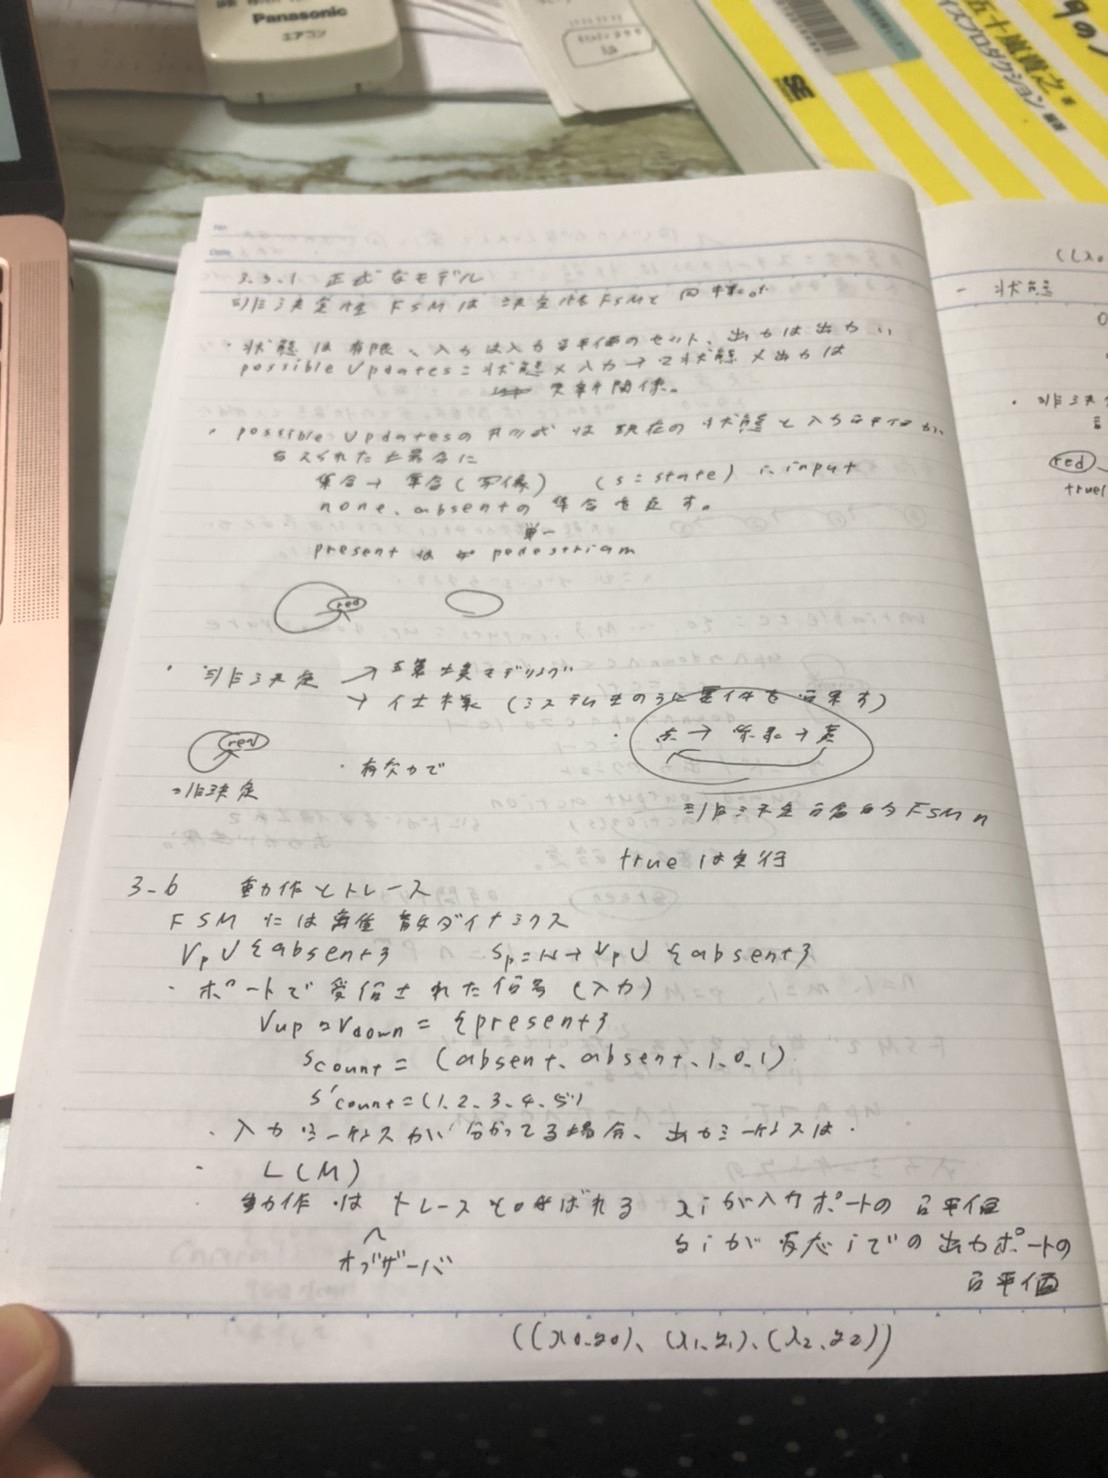 Panasonic
エアコン
五十嵐貴之 著
イズプロダクション
SE
No.
Date
3.5.1 正式なモデル
非決定性 FSMは 決定性FSMと 同様。
・状態は有限、入力は入力評価のセット、出力は出力
possible Updates = 状態×入力→2状態×出力は
更新関係。
・possible Updatesの形式は現在の状態と入力評価が
与えられた場合に
集合→集合(写像) (s=state) i. input
none、absentの集合を返す。
単一
present は pedestrian
red
・非決定 → 環境モデリング
→ 仕様
red
非決定
true は実行
3-6 動作とトレース
FSM には 離散ダイナミクス
Vp∪{absent} Sp=N→Vp∪{absent}
・ポートで受信された信号(入力)
Vup = Vdown = {present}
Scount = (absent、absent、1、0、1)
S'count = (1、2、3、4、5)
・入力シーケンスが分かってる場合、出力シーケンスは・
・L(M)
動作は トレースと呼ばれる xiが入力ポートの評価
オブザーバ
yiが反応iでの出力ポートの
評価
((x0、y0)、(x1、y1)、(x2、y2))
- 状態
red
true(